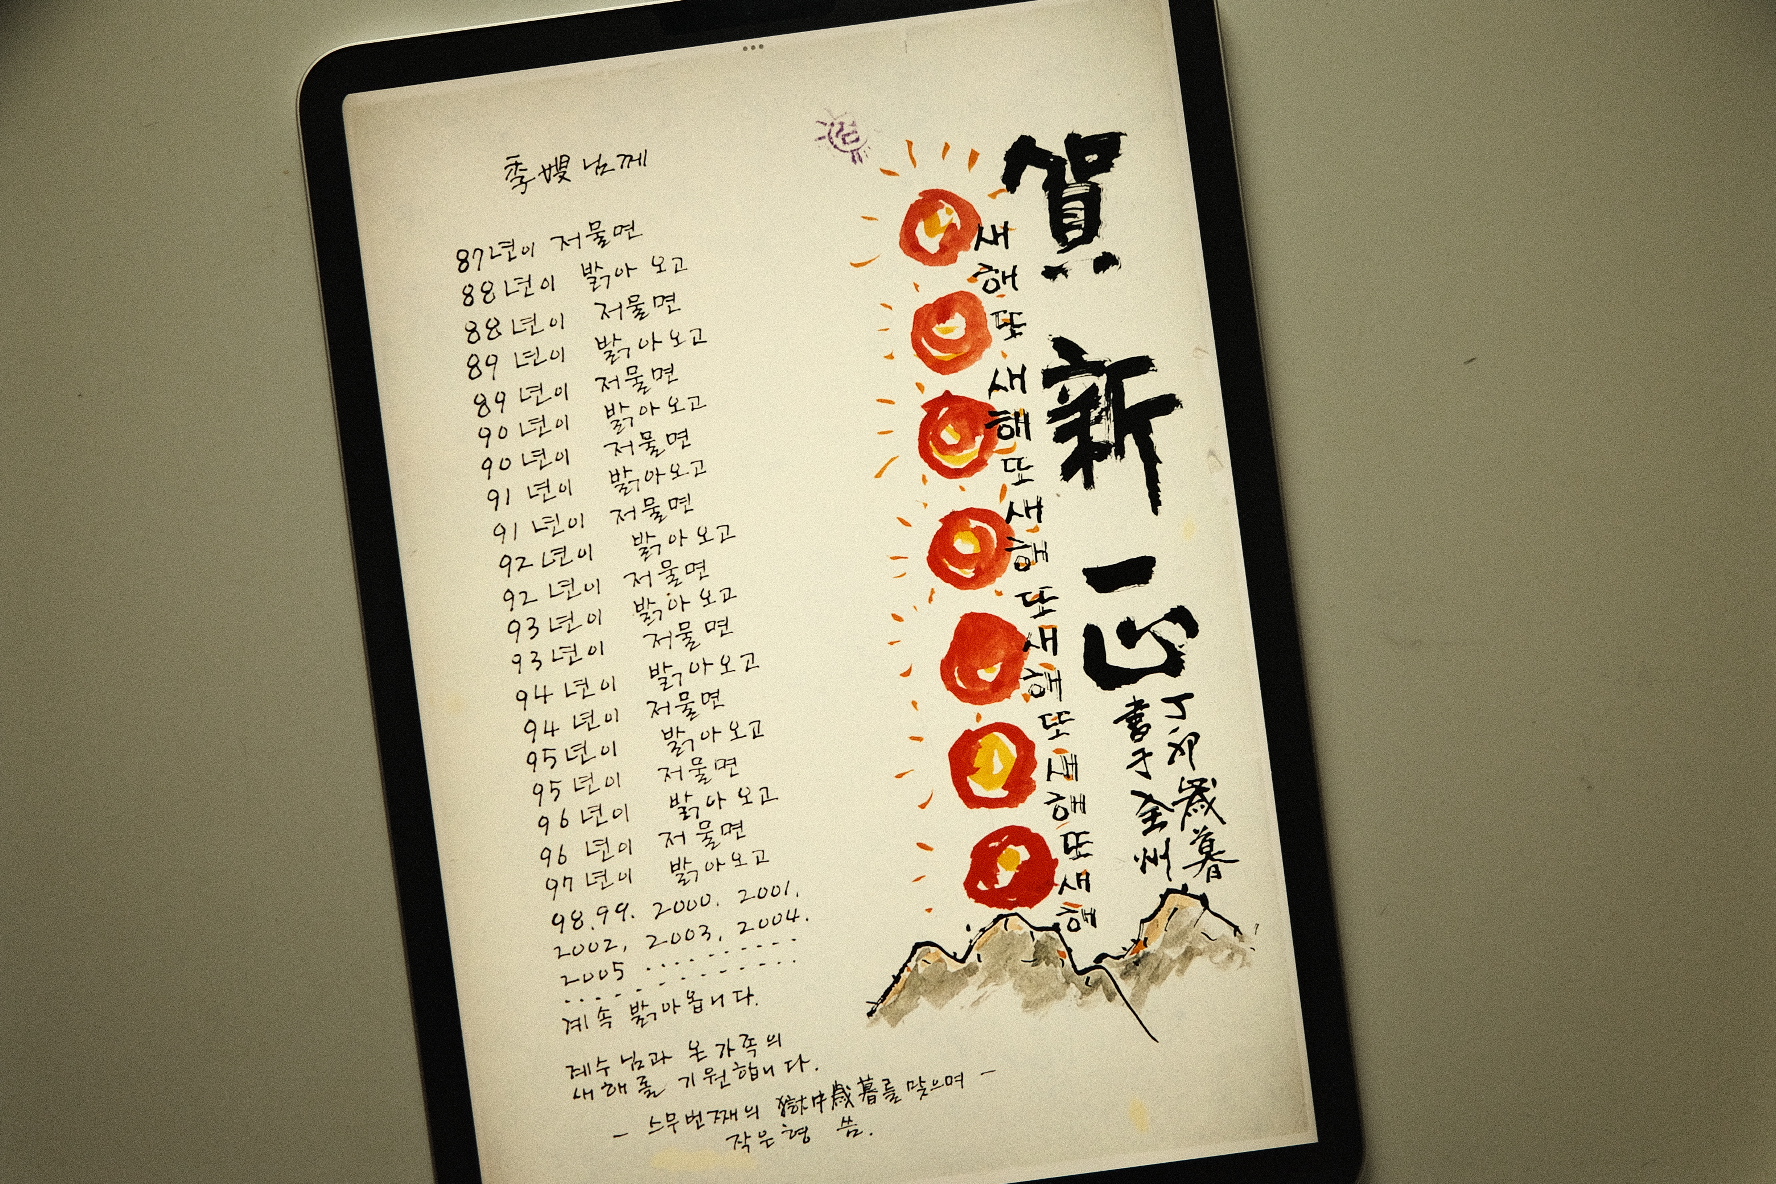 季嫂님께
87년이 저물면
88년이 밝아 오고
88년이 저물면
89년이 밝아오고
89년이 저물면
90년이 밝아오고
90년이 저물면
91년이 밝아오고
91년이 저물면
92년이 밝아오고
92년이 저물면
93년이 밝아오고
93년이 저물면
94년이 밝아오고
94년이 저물면
95년이 밝아오고
95년이 저물면
96년이 밝아오고
96년이 저물면
97년이 밝아오고
98.99. 2000. 2001.
2002, 2003, 2004.
2005 ..........
..........
계속 밝아옵니다.
계수님과 온가족의
새해를 기원합니다.
— 스무번째의 獄中歲暮를 맞으며 —
작은형 씀.
賀新正
새해또새해또새해또새해또새해또새해
丁卯歲暮
書于全州